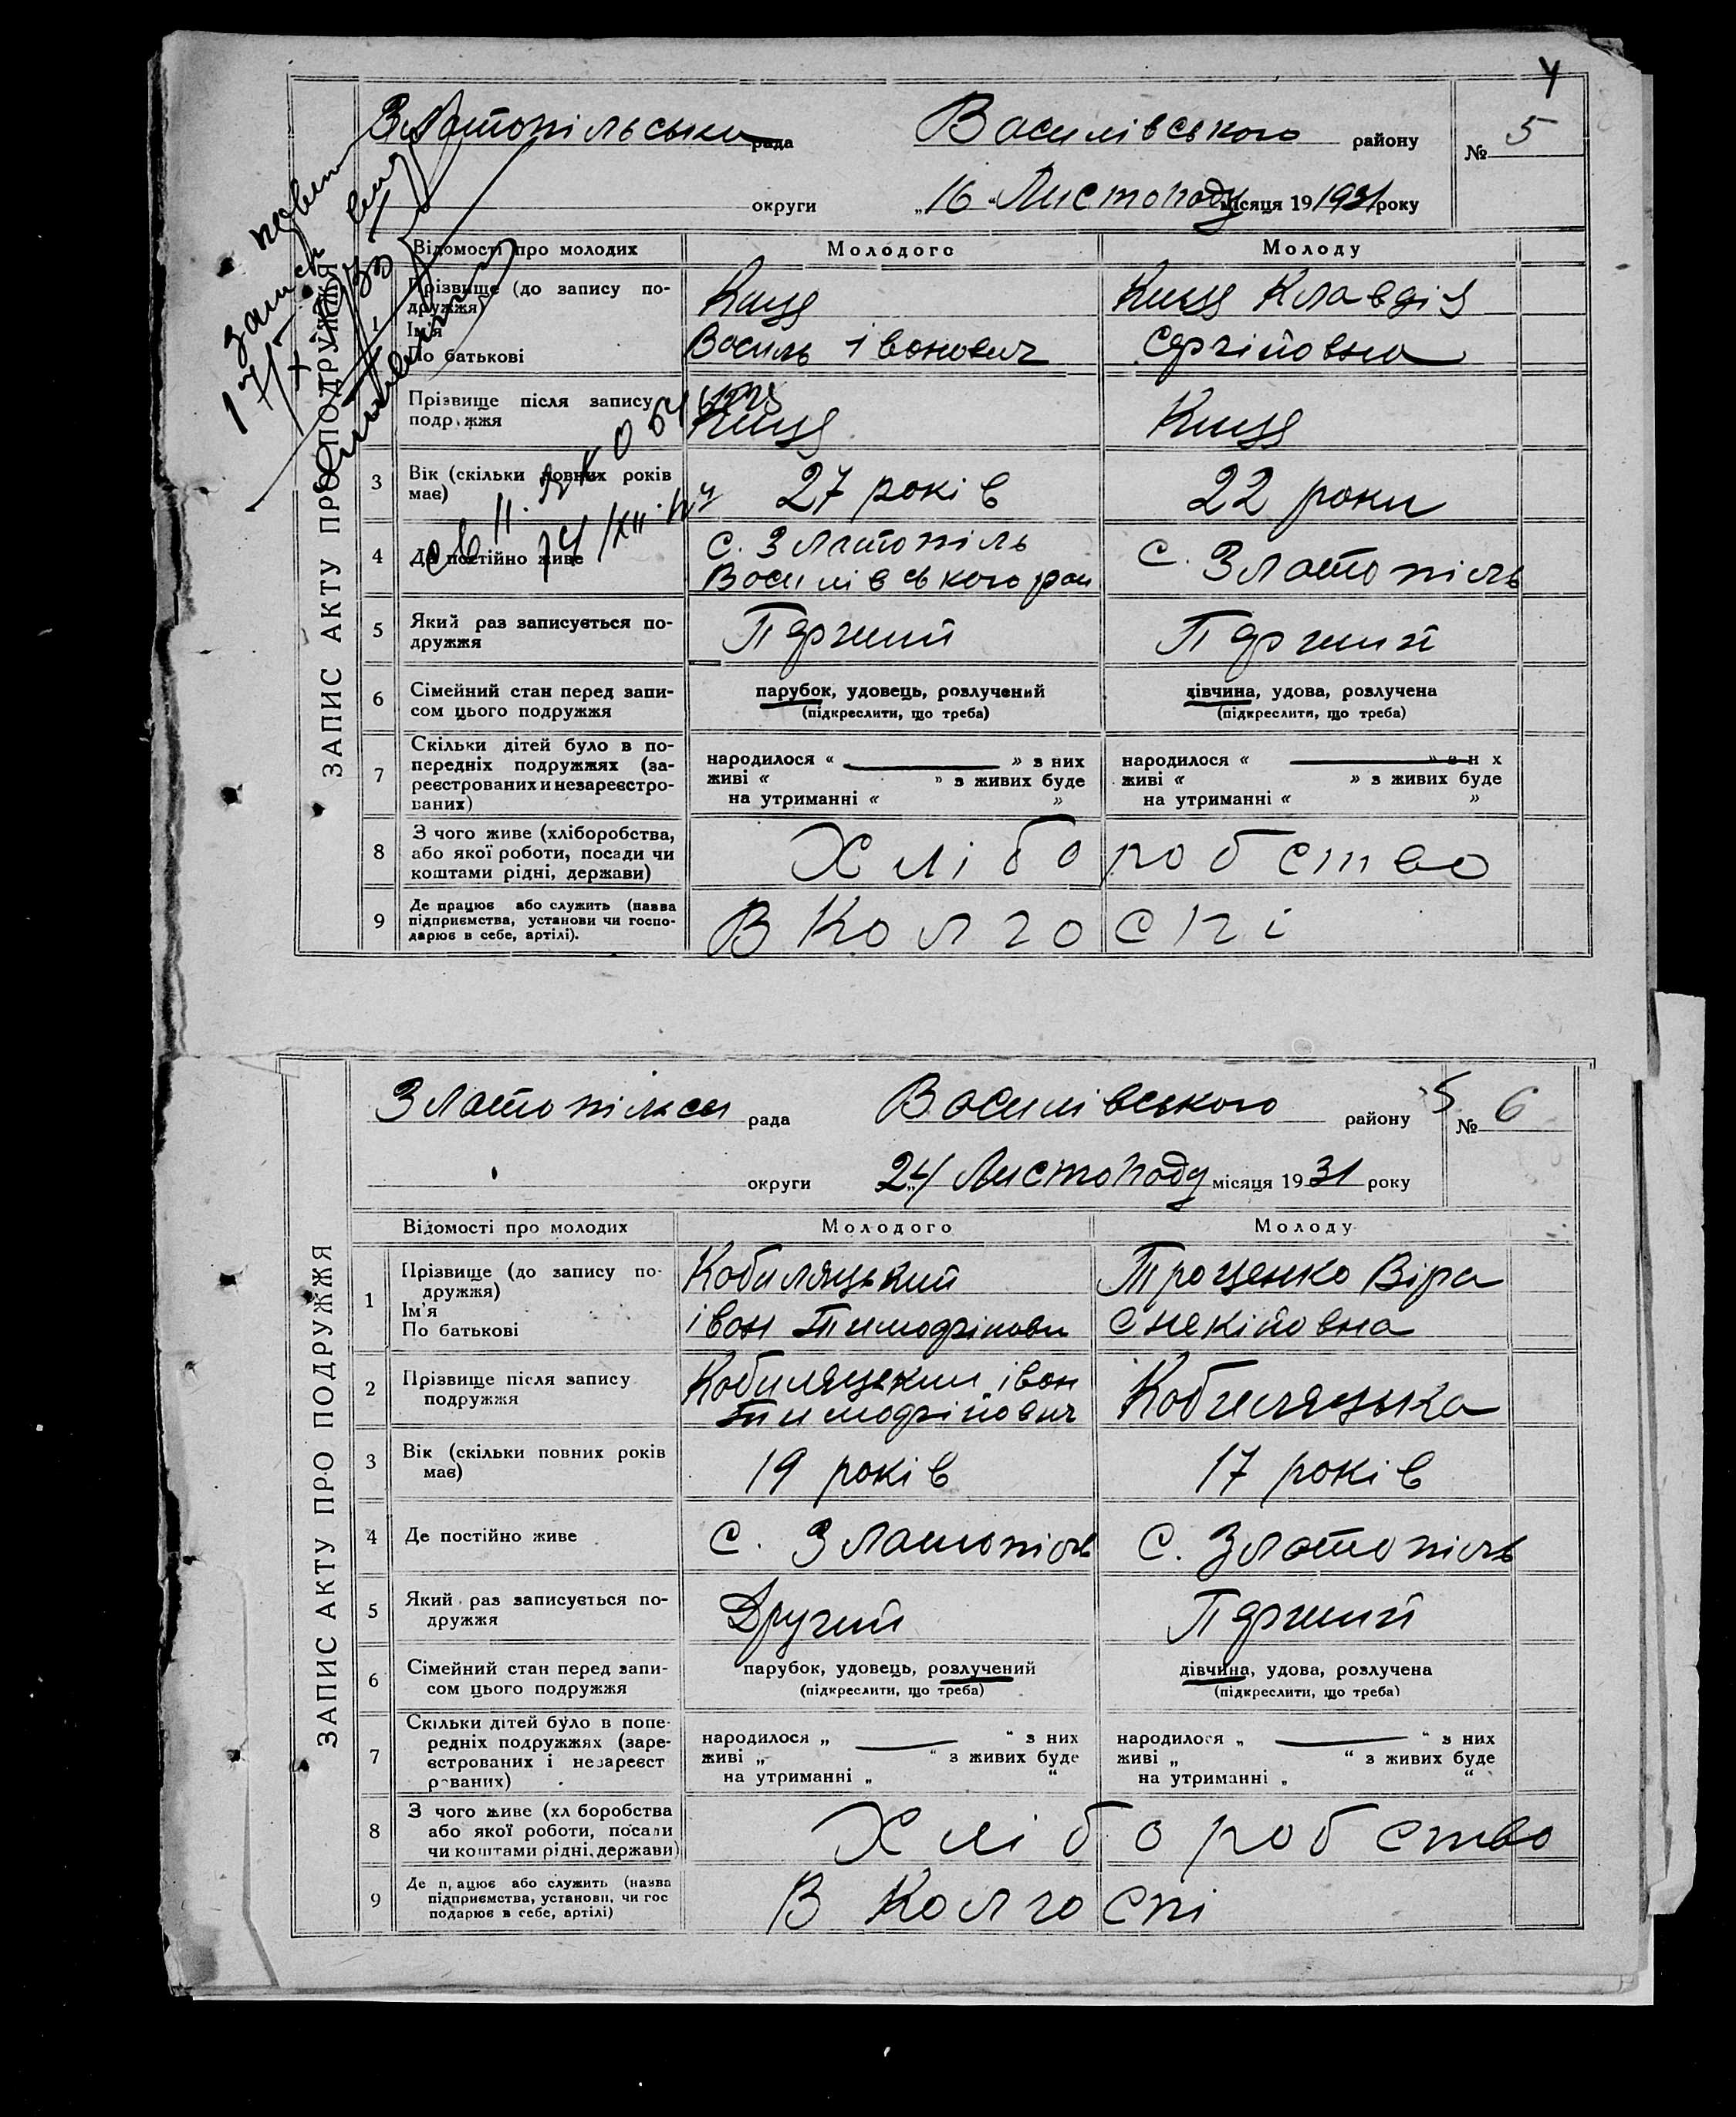 4
Златопільська рада Василівського району № 5
округи „16“ Листопаду місяця 19 1931 року
ЗАПИС АКТУ ПРО ПОДРУЖЖЯ
Відомості про молодих Молодого Молоду
Прізвище (до запису по-
дружжя)
Ім'я
По батькові
Кица
Василь іванович
Кица Клавдія
Сергіповна
Прізвище після запису
подружжя
Кица
Кица
3 Вік (скільки повних років
має)
27 років
22 роки
4 Де постійно живе
с. Златопіль
Василівського рай
с. Златопіль
5 Який раз записується по-
дружжя
Перший
Перший
6 Сімейний стан перед запи-
сом цього подружжя
парубок, удовець, розлучений
(підкреслити, що треба)
дівчина, удова, розлучена
(підкреслити, що треба)
7 Скільки дітей було в по-
передніх подружжях (за-
реєстрованих и незареєстро-
ваних)
народилося « » з них
живі « » з живих буде
на утриманні « »
народилося « » з н х
живі « » з живих буде
на утриманні « »
8 З чого живе (хліборобства,
або якої роботи, посади чи
коштами рідні, держави)
Хліборобство
9 Де працює або служить (назва
підприємства, установи чи госпо-
дарює в себе, артілі).
В Колгоспі
5
Златопільсь рада Василівського району № 6
округи 24 Листопаду місяця 1931 року
ЗАПИС АКТУ ПРО ПОДРУЖЖЯ
Відомості про молодих Молодого Молоду
1 Прізвище (до запису по-
дружжя)
Ім'я
По батькові
Кобиляцький
іван Тимофіпович
Троценко Віра
Снекіповна
2 Прізвище після запису
подружжя
Кобиляцький іван
Тимофіпович
Кобиляцька
3 Вік (скільки повних років
має)
19 років
17 років
4 Де постійно живе
с. Златопіль
с. Златопіль
5 Який раз записується по-
дружжя
Другий
Перший
6 Сімейний стан перед запи-
сом цього подружжя
парубок, удовець, розлучений
(підкреслити, що треба)
дівчина, удова, розлучена
(підкреслити, що треба)
7 Скільки дітей було в попе-
редніх подружжях (заре-
єстрованих і незареєст
рованих)
народилося „ “ з них
живі „ “ з живих буде
на утриманні „ “
народилося „ “ з них
живі „ “ з живих буде
на утриманні „ “
8 З чого живе (хл боробства
або якої роботи, посади
чи коштами рідні, держави)
Хліборобство
9 Де працює або служить (назва
підприємства, установи, чи гос
подарює в себе, артілі)
В Колгоспі